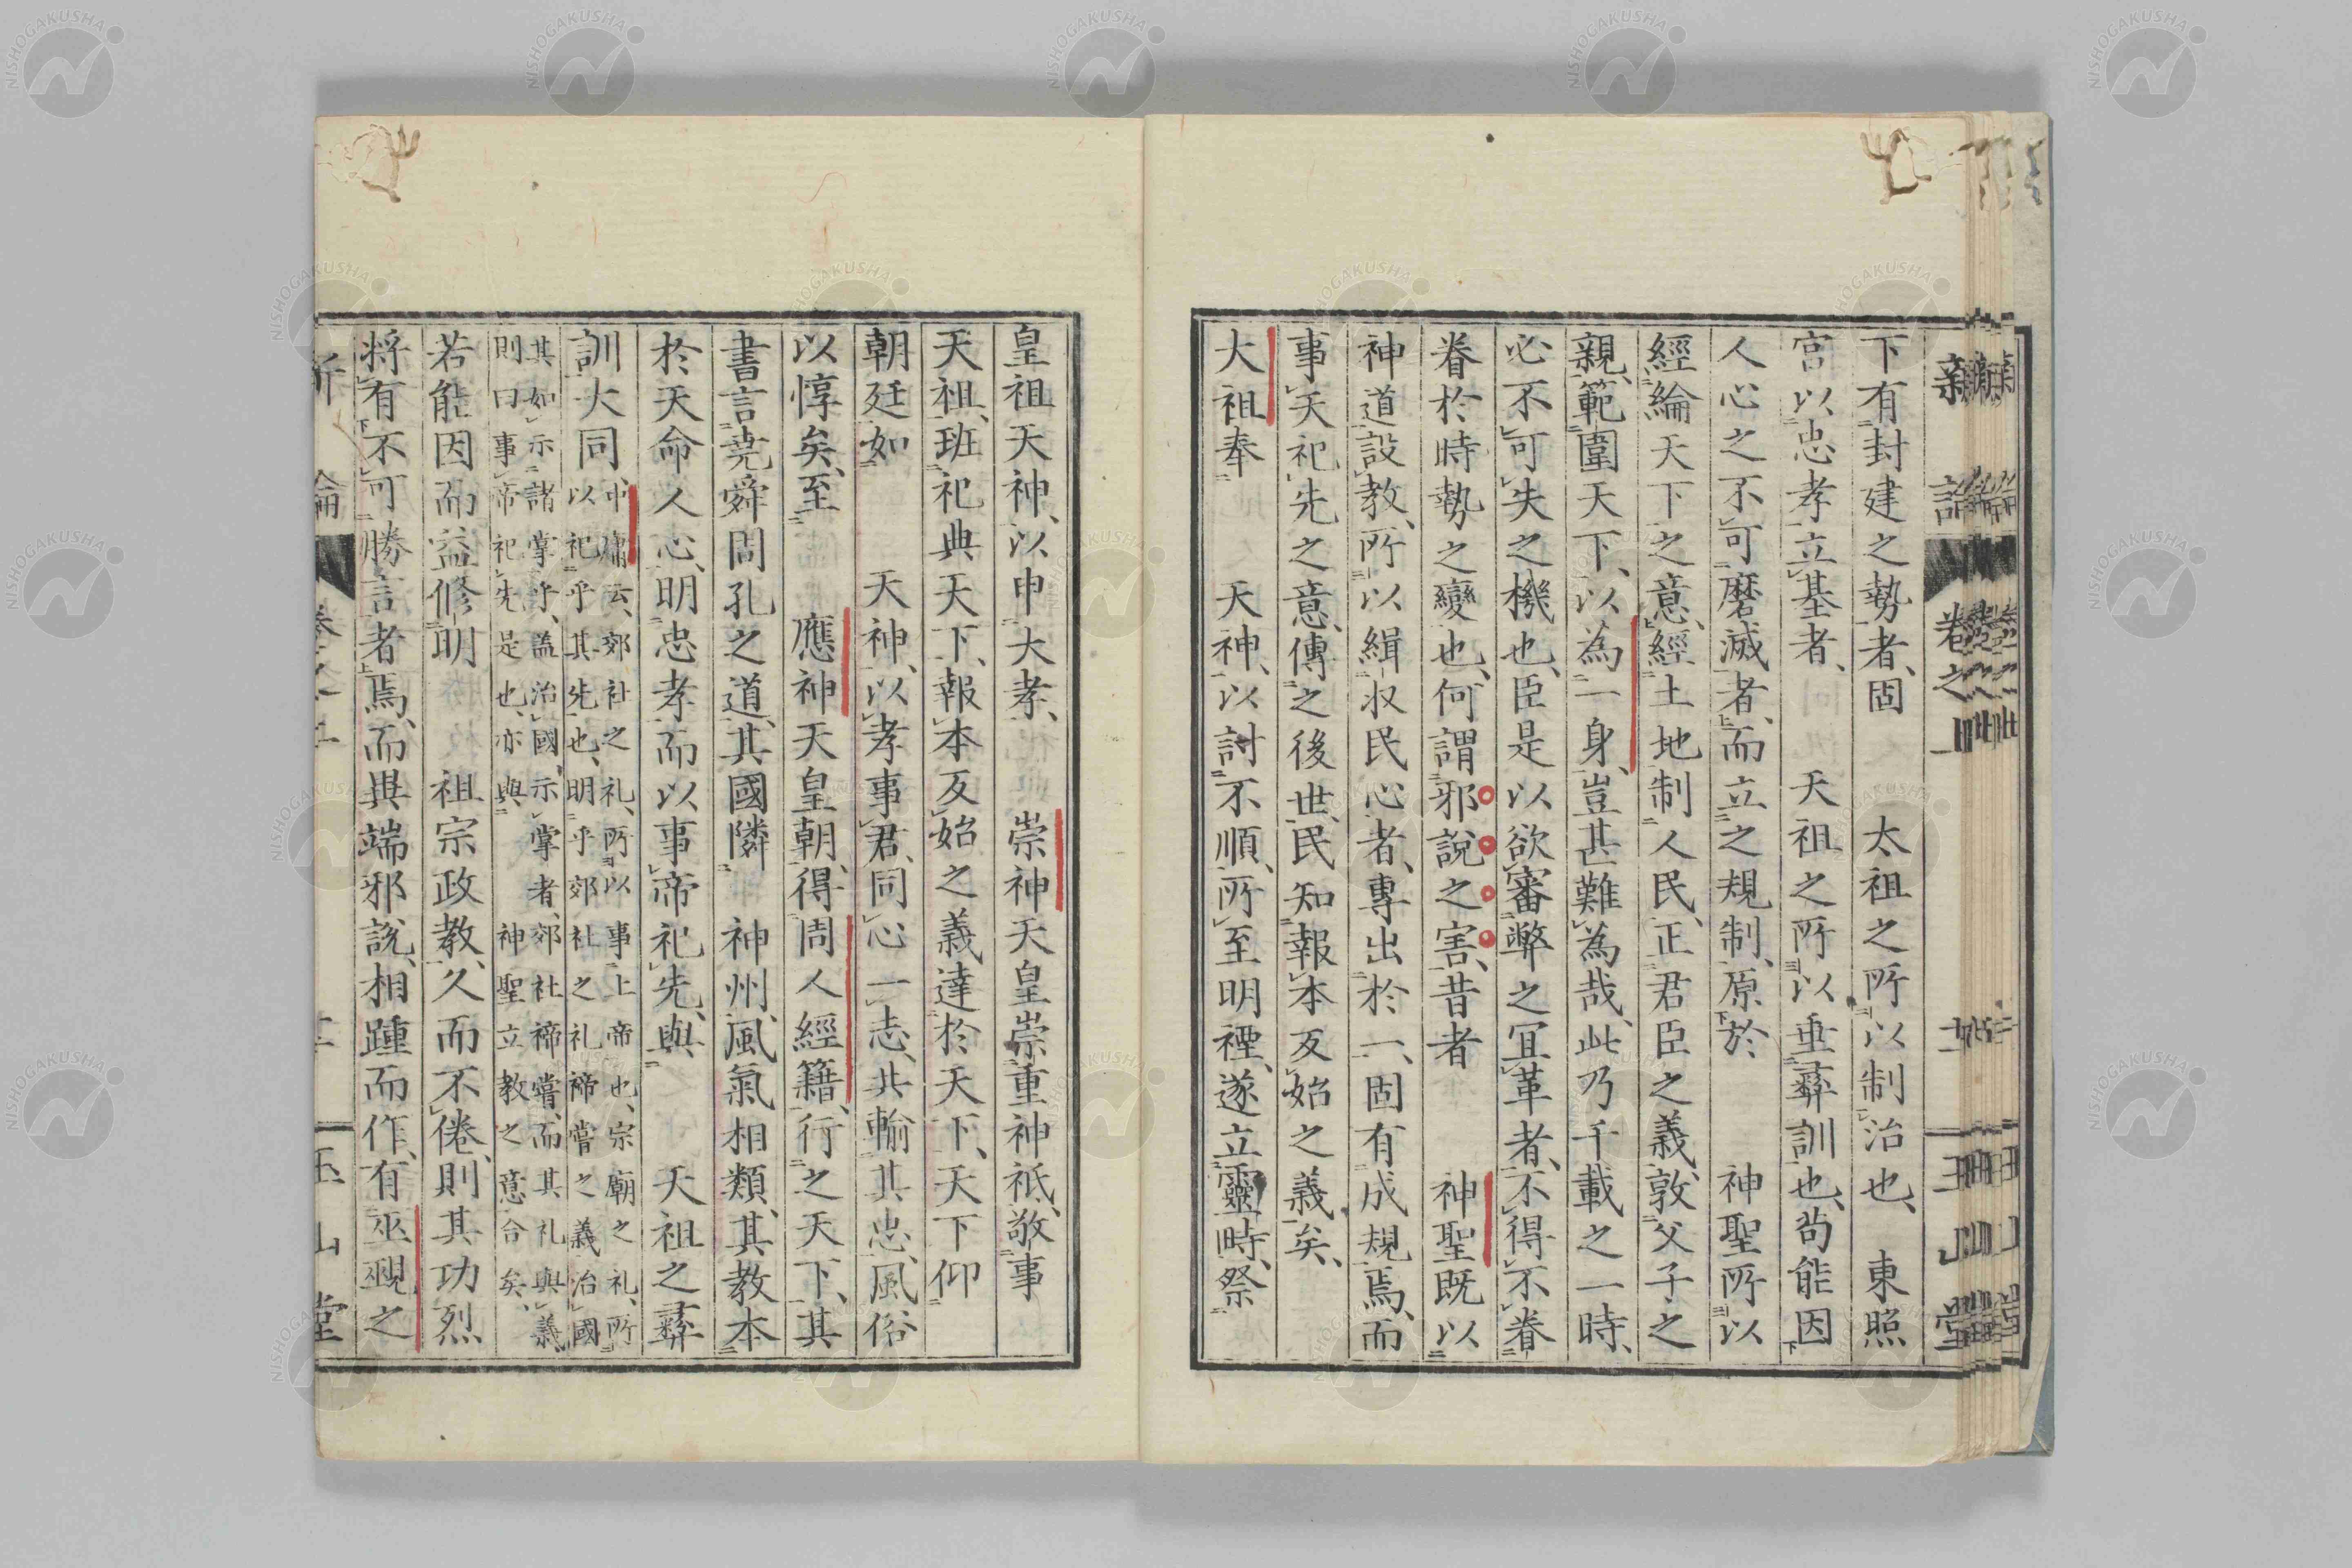 新論 卷之上
下有封建之勢者、固 太祖之所以制治也、 東照
宮以忠孝立基者、 天祖之所以垂彝訓也、苟能因
人心之不可磨滅者、而立之規制、原於 神聖所以
經綸天下之意、經土地制人民、正君臣之義、敦父子之
親、範圍天下、以為一身、豈甚難為哉、此乃千載之一時、
必不可失之機也、臣是以欲審弊之宜革者、不得不眷
眷於時勢之變也、何謂邪說之害、昔者 神聖既以
神道設教、所以緝收民心者、專出於一、固有成規焉、而
事天祀先之意、傳之後世、民知報本反始之義矣、
大祖奉 天神、以討不順、所至明禋、遂立靈畤、祭
皇祖天神、以申大孝、 崇神天皇崇重神祇、敬事
天祖、班祀典天下、報本反始之義達於天下、天下仰
朝廷如 天神、以孝事君、同心一志、共輸其忠、風俗
以惇矣、至 應神天皇朝、得周人經籍、行之天下、其
書言堯舜周孔之道、其國隣 神州、風氣相類、其教本
於天命人心、明忠孝而以事帝祀先、與 天祖之彝
訓大同、
中庸云、郊社之礼、所以事上帝也、宗廟之礼、所
以祀乎其先也、明乎郊社之礼禘嘗之義治國
其如示諸掌乎、蓋治國、示掌者、郊社禘嘗、而其礼與義
則曰事帝祀先是也、亦與 神聖立教之意合矣、
若能因而益修明 祖宗政教、久而不倦、則其功烈
將有不可勝言者焉、而異端邪說、相踵而作、有巫覡之
新論 卷之上 玉山堂